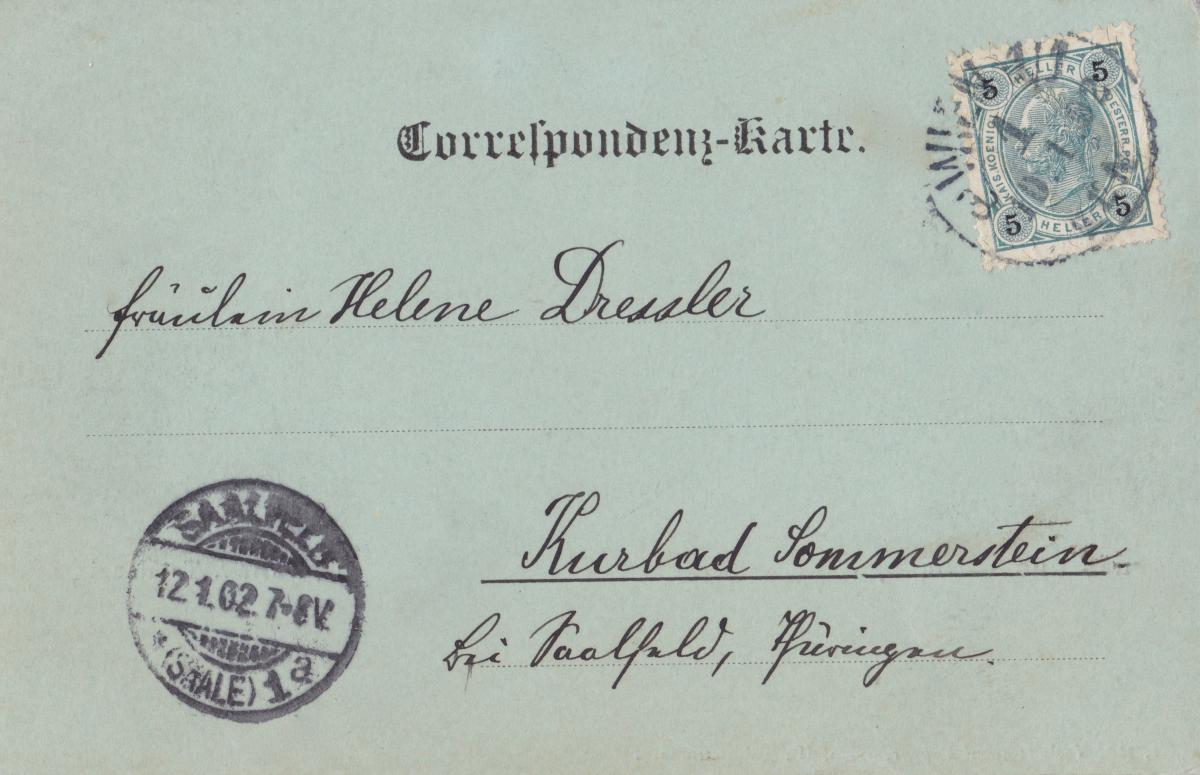 Correspondenz-Karte.
5 HELLER 5
KAIS. KOENIGL.
OESTERR. POST
5 HELLER 5
WIEN
1
Fräulein Helene Dressler
Kurbad Sommerstein.
bei Saalfeld, Thüringen.
SAALFELD
12.1.02.7-8V.
* (SAALE) 1a